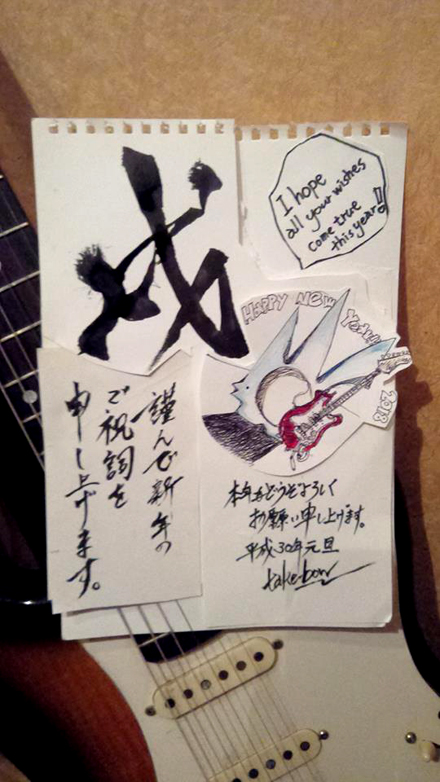 戌
I hope
all your wishes
come true
this year!!
HAPPY NEW YEAR
2018
謹んで新年の
ご祝詞を
申し上げます。
本年もどうぞよろしく
お願い申し上げます。
平成30年元旦
take-bow